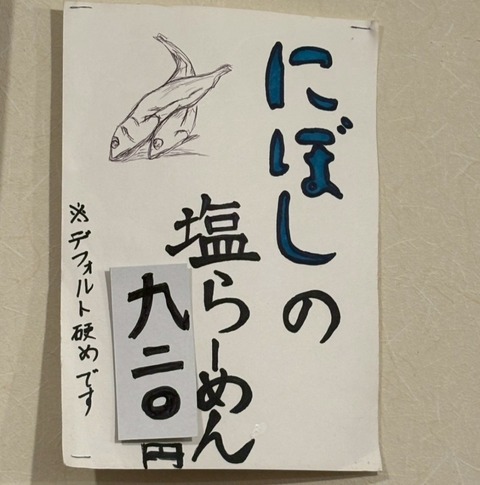 にぼしの
塩らーめん
九二〇円
※デフォルト硬めです